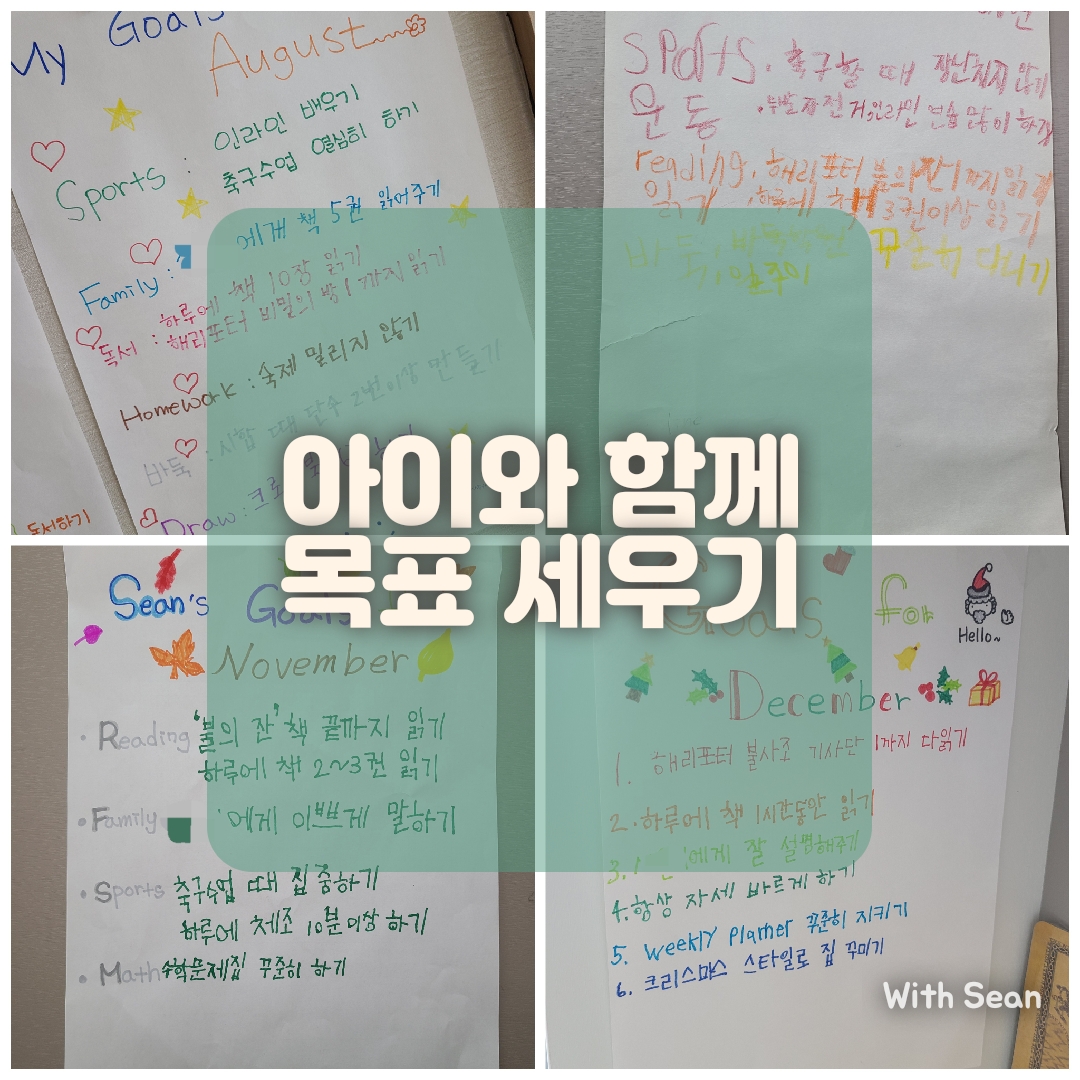 My Goals
August
Sports : 인라인 배우기
축구수업 열심히 하기
Family : 에게 책 5권 읽어주기
독서 : 하루에 책 10장 읽기
해리포터 비밀의 방 1까지 읽기
Homework : 숙제 밀리지 않기
바둑 : 시합 때 단수 2번이상 만들기
Draw : 크로
독서하기
Sports. 축구할 때 장난치지 않기
운동 . 두발자전거, 인라인 연습 많이 하기
reading. 해리포터 불의 잔 1까지 읽기
읽기 . 하루에 책 3권이상 읽기
바둑. 바둑학원 꾸준히 다니기
아이와 함께
목표 세우기
Sean's Goals
November
• Reading '불의 잔' 책 끝까지 읽기
하루에 책 2~3권 읽기
• Family 에게 이쁘게 말하기
• Sports 축구수업 때 집중하기
하루에 체조 10분이상 하기
• Math 수학문제집 꾸준히 하기
Goals for
Hello~
December
1. 해리포터 불사조 기사단 1까지 다읽기
2. 하루에 책 1시간동안 읽기
3. 에게 잘 설명해주기
4. 항상 자세 바르게 하기
5. Weekly Planner 꾸준히 지키기
6. 크리스마스 스타일로 집 꾸미기
With Sean